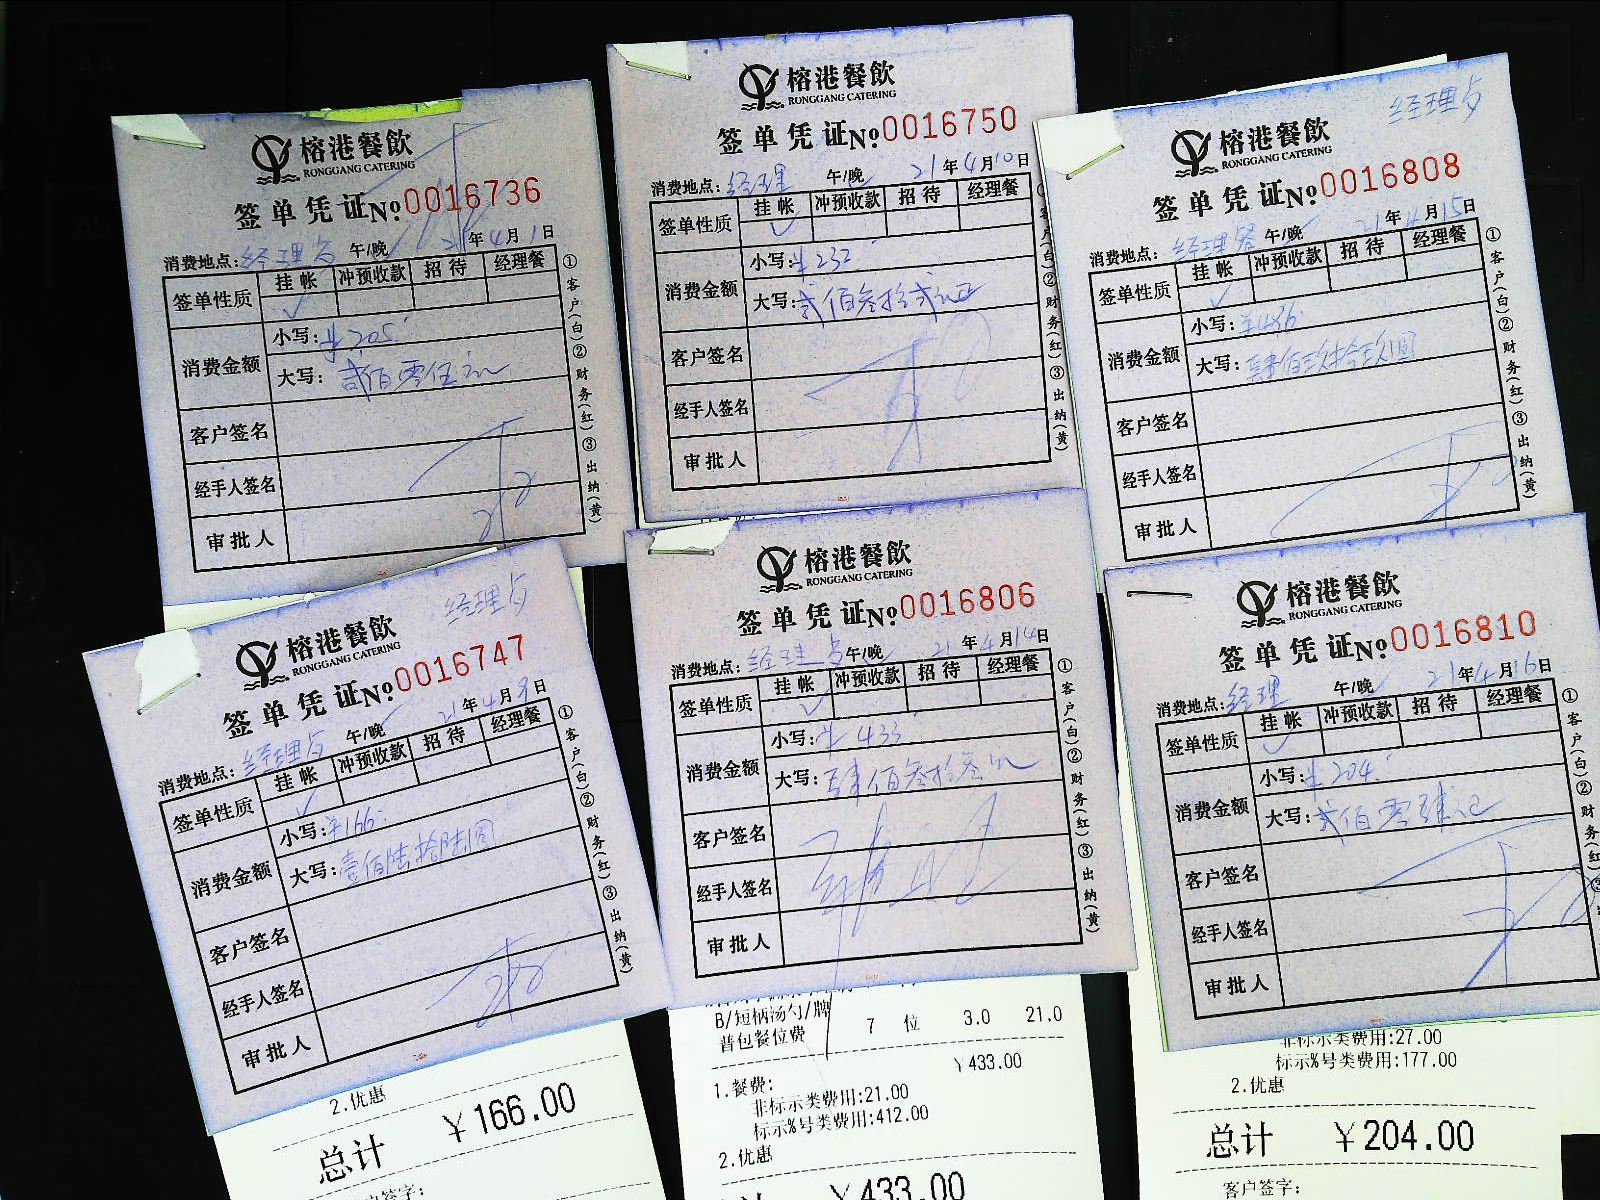 榕港餐飲
RONGGANG CATERING
签单凭证 No.0016736
消费地点:经理 午/晚 21年4月1日
签单性质 挂帐 冲预收款 招待 经理餐
✓
消费金额 小写:¥205
大写:贰佰零伍元
客户签名
经手人签名
审批人
①客户(白)②财务(红)③出纳(黄)
榕港餐飲
RONGGANG CATERING
签单凭证 No.0016750
消费地点:经理 午/晚 21年4月10日
签单性质 挂帐 冲预收款 招待 经理餐
✓
消费金额 小写:¥232
大写:贰佰叁拾贰元
客户签名
经手人签名
审批人
①客户(白)②财务(红)③出纳(黄)
经理
榕港餐飲
RONGGANG CATERING
签单凭证 No.0016808
消费地点:经理 午/晚 21年4月15日
签单性质 挂帐 冲预收款 招待 经理餐
✓
消费金额 小写:
大写:
客户签名
经手人签名
审批人
①客户(白)②财务(红)③出纳(黄)
经理
榕港餐飲
RONGGANG CATERING
签单凭证 No.0016747
消费地点:经理 午/晚 21年4月9日
签单性质 挂帐 冲预收款 招待 经理餐
✓
消费金额 小写:¥166
大写:壹佰陆拾陆圆
客户签名
经手人签名
审批人
①客户(白)②财务(红)③出纳(黄)
2.优惠
总计 ¥166.00
客户签字:
榕港餐飲
RONGGANG CATERING
签单凭证 No.0016806
消费地点:经理 午/晚 21年4月14日
签单性质 挂帐 冲预收款 招待 经理餐
✓
消费金额 小写:¥433
大写:肆佰叁拾叁元
客户签名
经手人签名
审批人
①客户(白)②财务(红)③出纳(黄)
B/短柄汤勺/牌
普包餐位费 7 位 3.0 21.0
¥433.00
1.餐费:
非标示类费用:21.00
标示%号类费用:412.00
2.优惠
总计 ¥433.00
榕港餐飲
RONGGANG CATERING
签单凭证 No.0016810
消费地点:经理 午/晚 21年4月16日
签单性质 挂帐 冲预收款 招待 经理餐
✓
消费金额 小写:¥204
大写:贰佰零肆元
客户签名
经手人签名
审批人
①客户(白)②财务(红)③出纳(黄)
非标示类费用:27.00
标示%号类费用:177.00
2.优惠
总计 ¥204.00
客户签字: